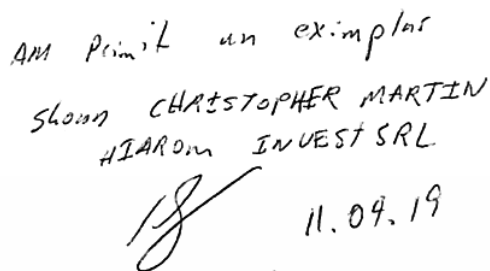 AM Primit un eximplar
Shawn CHRISTOPHER MARTIN
HIAROM INVEST SRL
11.04.19